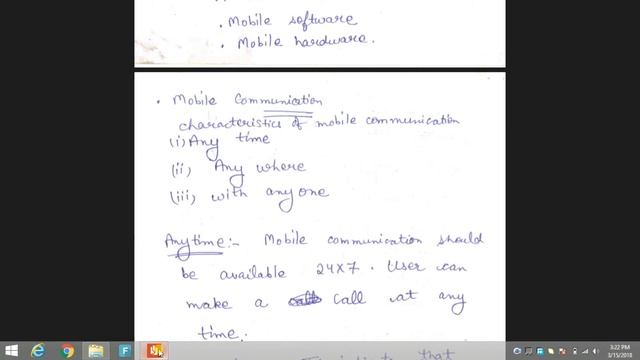 • Mobile software
• Mobile hardware.
• Mobile Communication
characteristics of mobile communication
(i) Any time
(ii) Any where
(iii) with anyone
Anytime:- Mobile communication should
be available 24x7. User can
make a call at any
time.
that
3:22 PM
3/15/2018